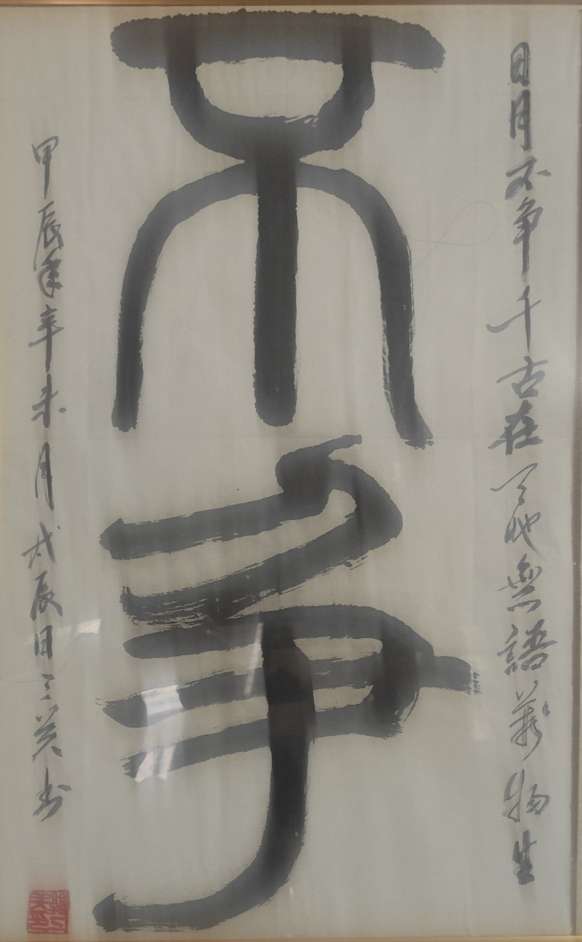 日月不争千古在天地無語萬物生
不爭
甲辰年辛未月戊辰日